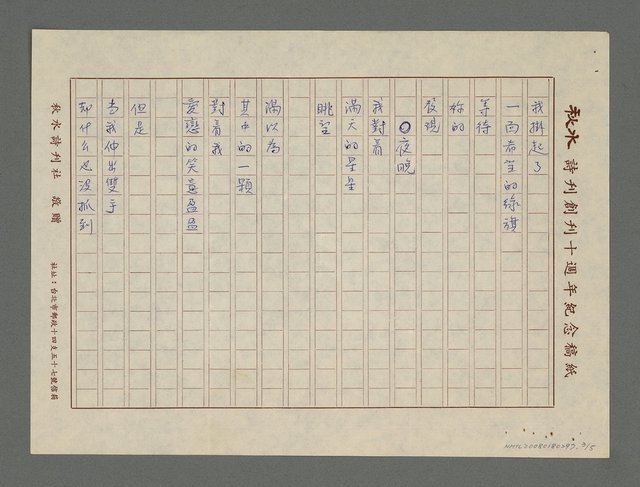 秋水 詩刊創刊十週年紀念稿紙
我掛起了
一面希望的綠旗
等待
妳的
發現
夜晚
我對着
滿天的星星
眺望
滿以為
其中的一顆
對着我
愛戀的笑意盈盈
但是
當我伸出雙手
却什么也沒抓到
秋水詩刊社 敬贈
社址：台北市郵政十四支五十七號信箱
NMTL20080180297, 3/5